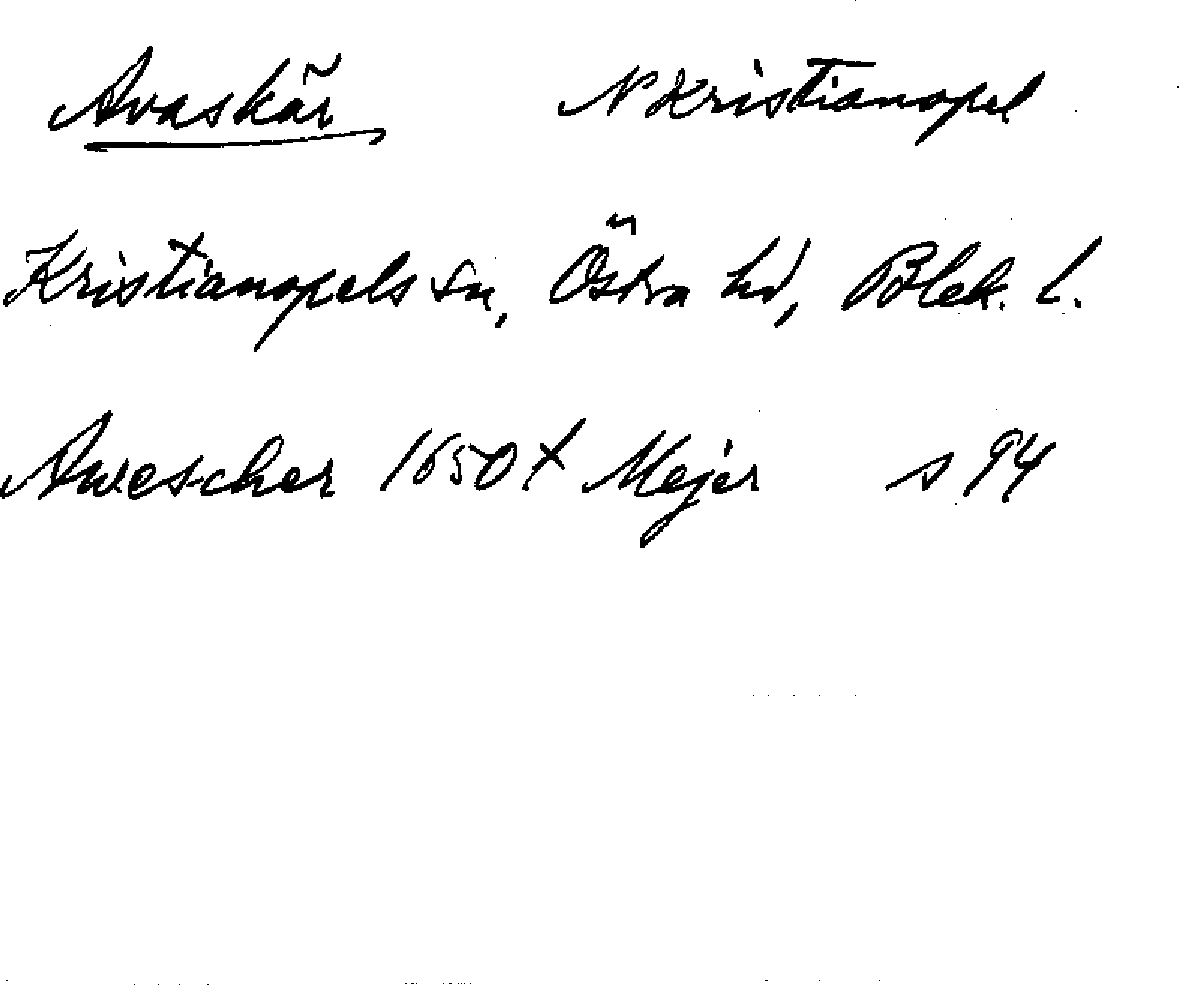 Avaskär N Kristianopel
Kristianopels sn, Östra hd, Blek. l.
Awescher 1650 t Mejer s 94